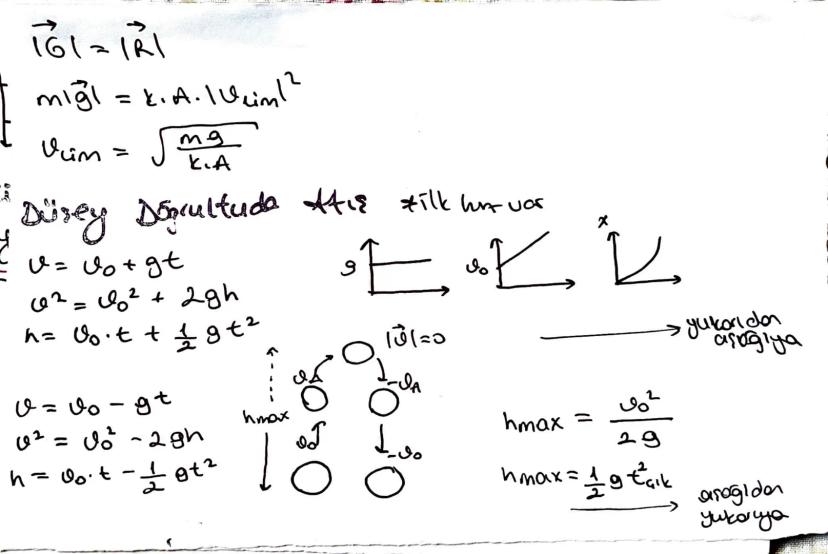 |G⃗| = |R⃗|
m|g⃗| = k.A.|ϑlim|²
ϑlim = √(mg / k.A)
Düşey Doğrultuda Atış *ilk hız var
ϑ = ϑ₀ + gt
ϑ² = ϑ₀² + 2gh
h = ϑ₀.t + 1/2 gt²
g
ϑ₀
x
yukarıdan
aşağıya
|ϑ⃗|=0
ϑA
-ϑA
hmax
ϑ₀
-ϑ₀
ϑ = ϑ₀ - gt
ϑ² = ϑ₀² - 2gh
h = ϑ₀.t - 1/2 gt²
hmax = ϑ₀² / 2g
hmax = 1/2 g t²çık
aşağıdan
yukarıya